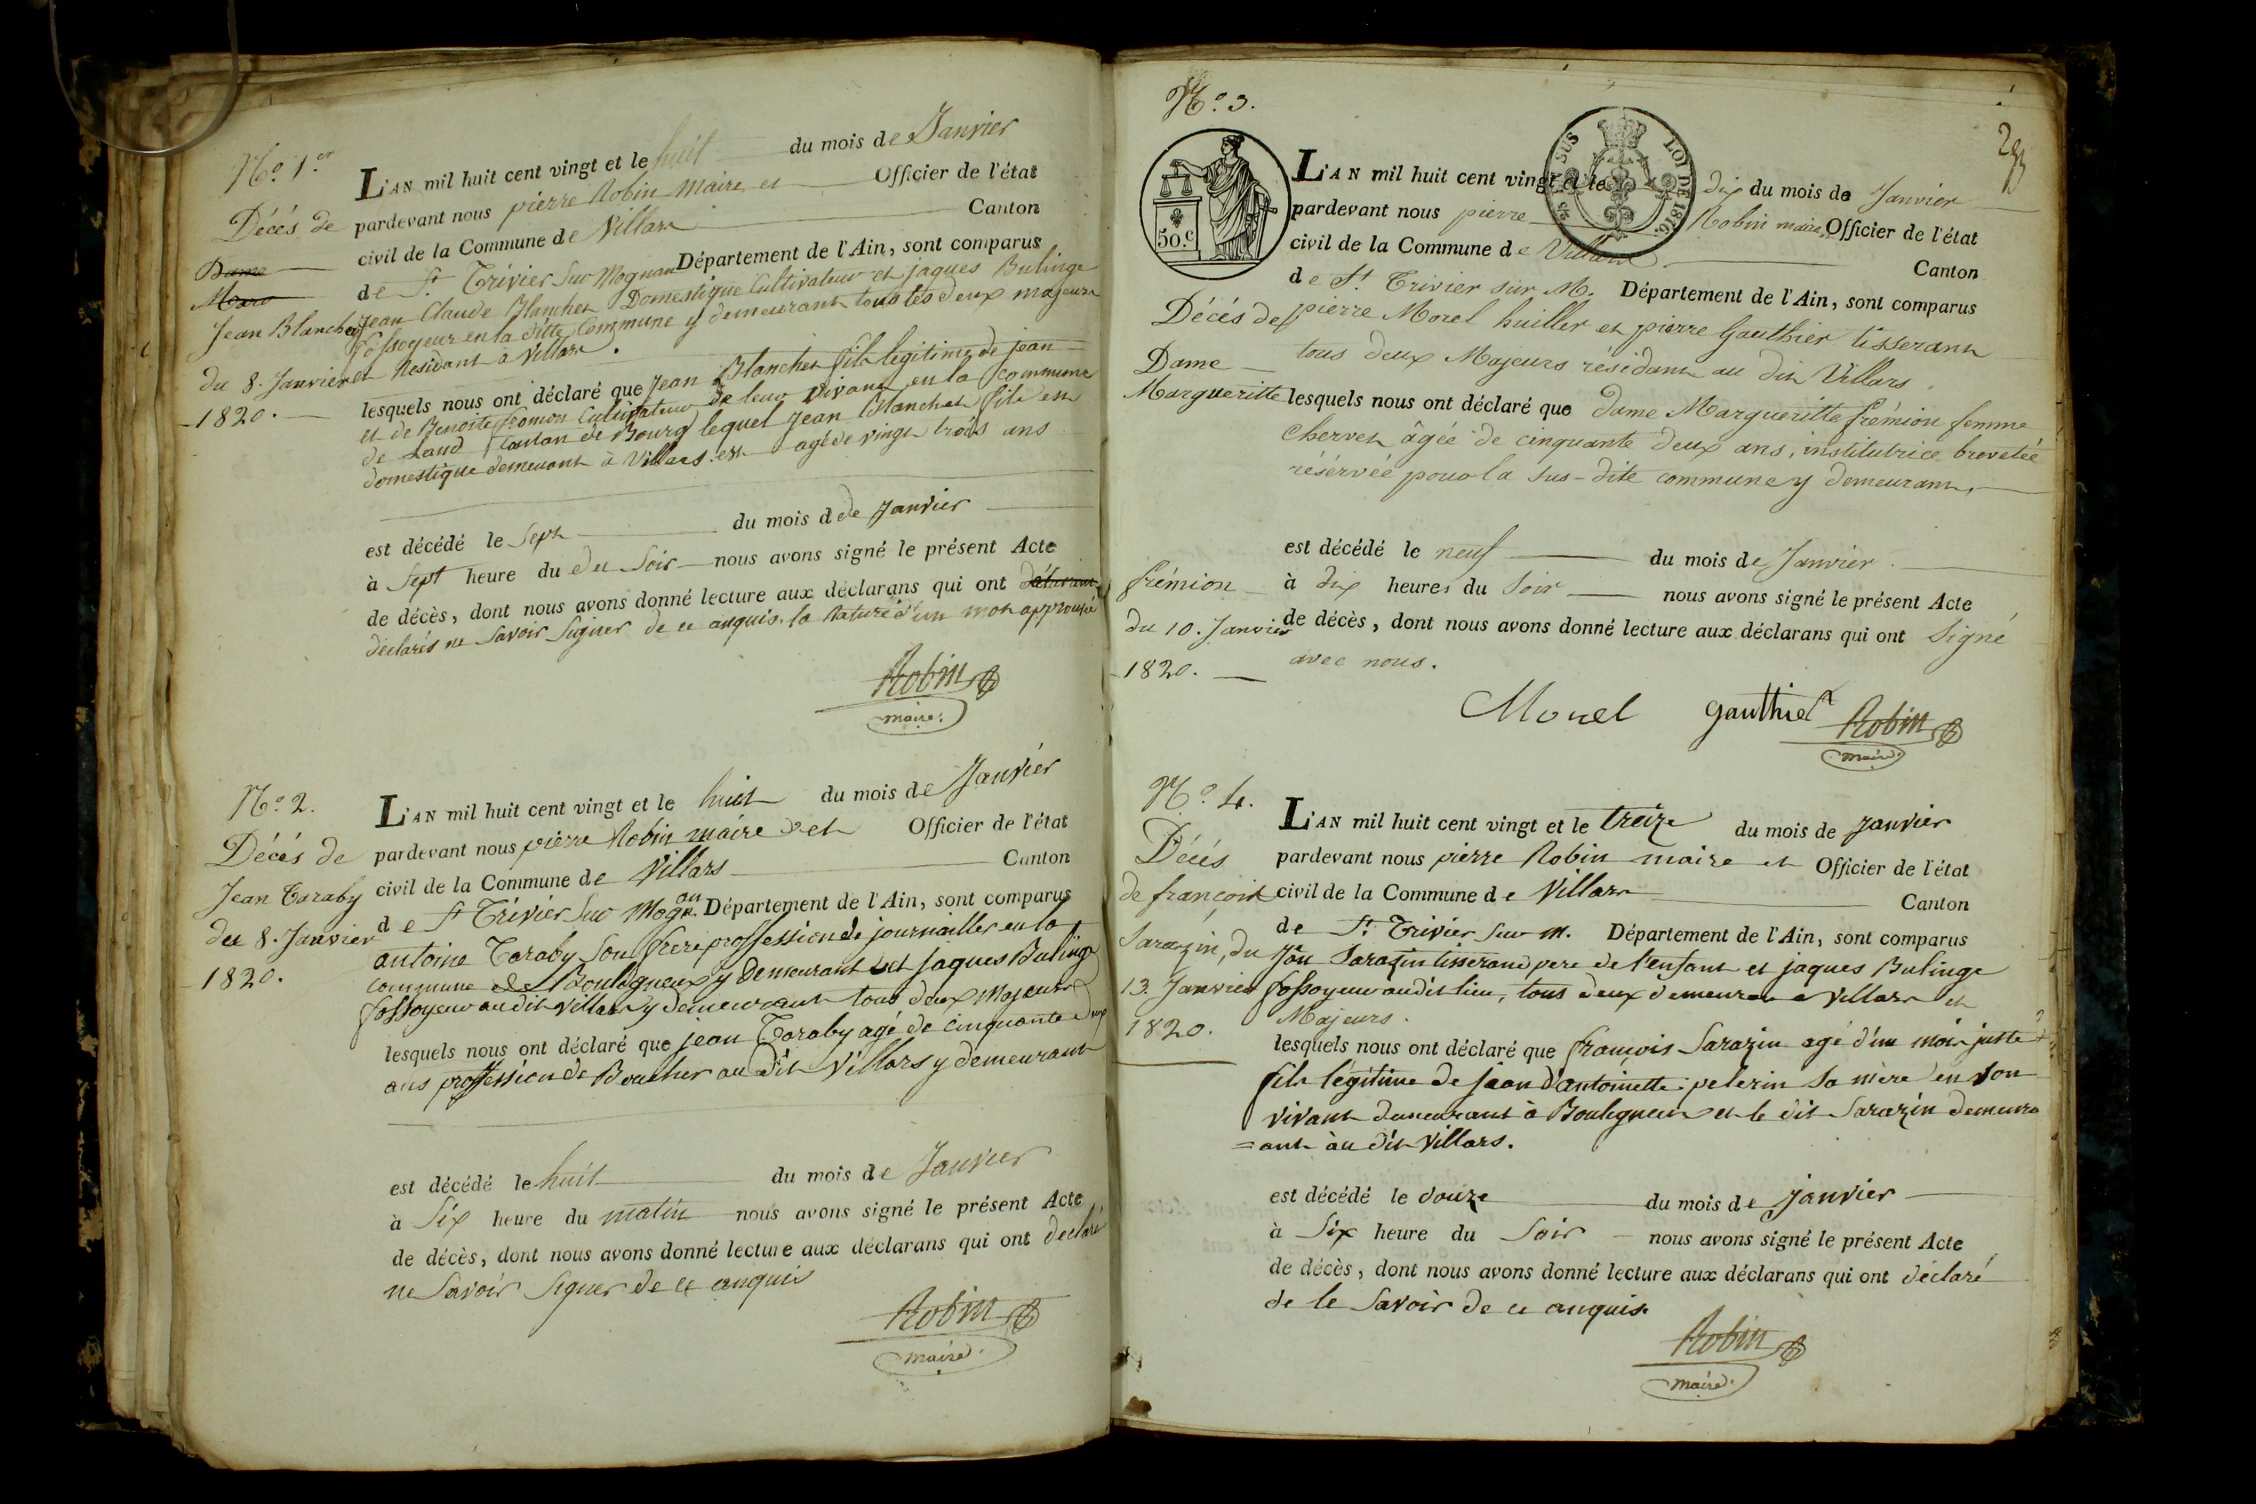 No. 1er
Décès de
Dame
Jean Blanchet
du 8. Janvier
1820.
L'AN mil huit cent vingt et le huit du mois de Janvier
pardevant nous pierre Robin maire et Officier de l'état
civil de la Commune de Villars Canton
de St. Trivier sur Mognan Département de l'Ain, sont comparus
Jean Claude Blanchet Domestique Cultivateur et jaques Bulinge
fossoyeur en la ditte Commune y demeurant tous les deux majeurs
et Residant à Villars.
lesquels nous ont déclaré que Jean Blanchet fils legitime de jean
et de Benoite fromon Cultivateur de leur vivant en la commune
de Canton de Bourg lequel Jean Blanchet fils en
domestique demeurant à Villars est agé de vingt trois ans
est décédé le Sept du mois de de Janvier
à Sept heure du du Soir nous avons signé le présent Acte
de décès, dont nous avons donné lecture aux déclarans qui ont
déclarés ne Savoir Signer de ce enquis. la Rature d'un mot approuvé
Robin
maire.
No. 2.
Décès de
Jean Taraby
du 8. Janvier
1820.
L'AN mil huit cent vingt et le huit du mois de Janvier
pardevant nous pierre Robin maire et Officier de l'état
civil de la Commune de Villars Canton
de St Trivier Sur Mognan. Département de l'Ain, sont comparus
antoine Taraby Son frere proffession de journailler en la
commune de Bouligneux y Demeurant et jaques Bulinge
fossoyeur au dit villars y demeurant tous deux Majeurs
lesquels nous ont déclaré que jean Taraby agé de cinquante deux
ans proffession de Boucher au dit Villars y demeurant
est décédé le huit du mois de Janvier
à Six heure du matin nous avons signé le présent Acte
de décès, dont nous avons donné lecture aux déclarans qui ont declaré
ne Savoir Signer de ce enquis
Robin
maire.
No. 3.
293
50.c
SUS
LOI DE 1816.
Décès de
Dame
Margueritte
frémion
du 10. Janvier
1820.
L'AN mil huit cent vingt et le dix du mois de Janvier
pardevant nous pierre Robin maire, Officier de l'état
civil de la Commune de Villars Canton
de St. Trivier sur M. Département de l'Ain, sont comparus
pierre Morel huillier et pierre Gauthier tisserant
tous deux Majeurs résidant au dit Villars.
lesquels nous ont déclaré que dame Margueritte frémion femme
Chervet âgée de cinquante deux ans, institutrice brevetée
résérvée pour la sus-dite commune y demeurant,
est décédé le neuf du mois de Janvier.
à dix heures du Soir nous avons signé le présent Acte
de décès, dont nous avons donné lecture aux déclarans qui ont Signé
avec nous.
Morel Gauthier Robin
maire
No. 4.
Décès
de françois
Sarazin, du
13. Janvier
1820.
L'AN mil huit cent vingt et le treize du mois de janvier
pardevant nous pierre Robin maire et Officier de l'état
civil de la Commune de Villars Canton
de St. Trivier sur m. Département de l'Ain, sont comparus
Jean Sarazin tisserand pere de l'enfant et jaques Bulinge
fossoyeur au dit lieu, tous deux demeurant a Villars et
Majeurs.
lesquels nous ont déclaré que francois Sarazin agé d'un mois juste
fils legitime de jean d'antoinette pelerin sa mère en son
vivant demeurant à Bouligneux et le dit Sarazin demeure
=ant au dit Villars.
est décédé le douze du mois de janvier
à Six heure du Soir nous avons signé le présent Acte
de décès, dont nous avons donné lecture aux déclarans qui ont déclaré
de le Savoir de ce enquis.
Robin
maire.